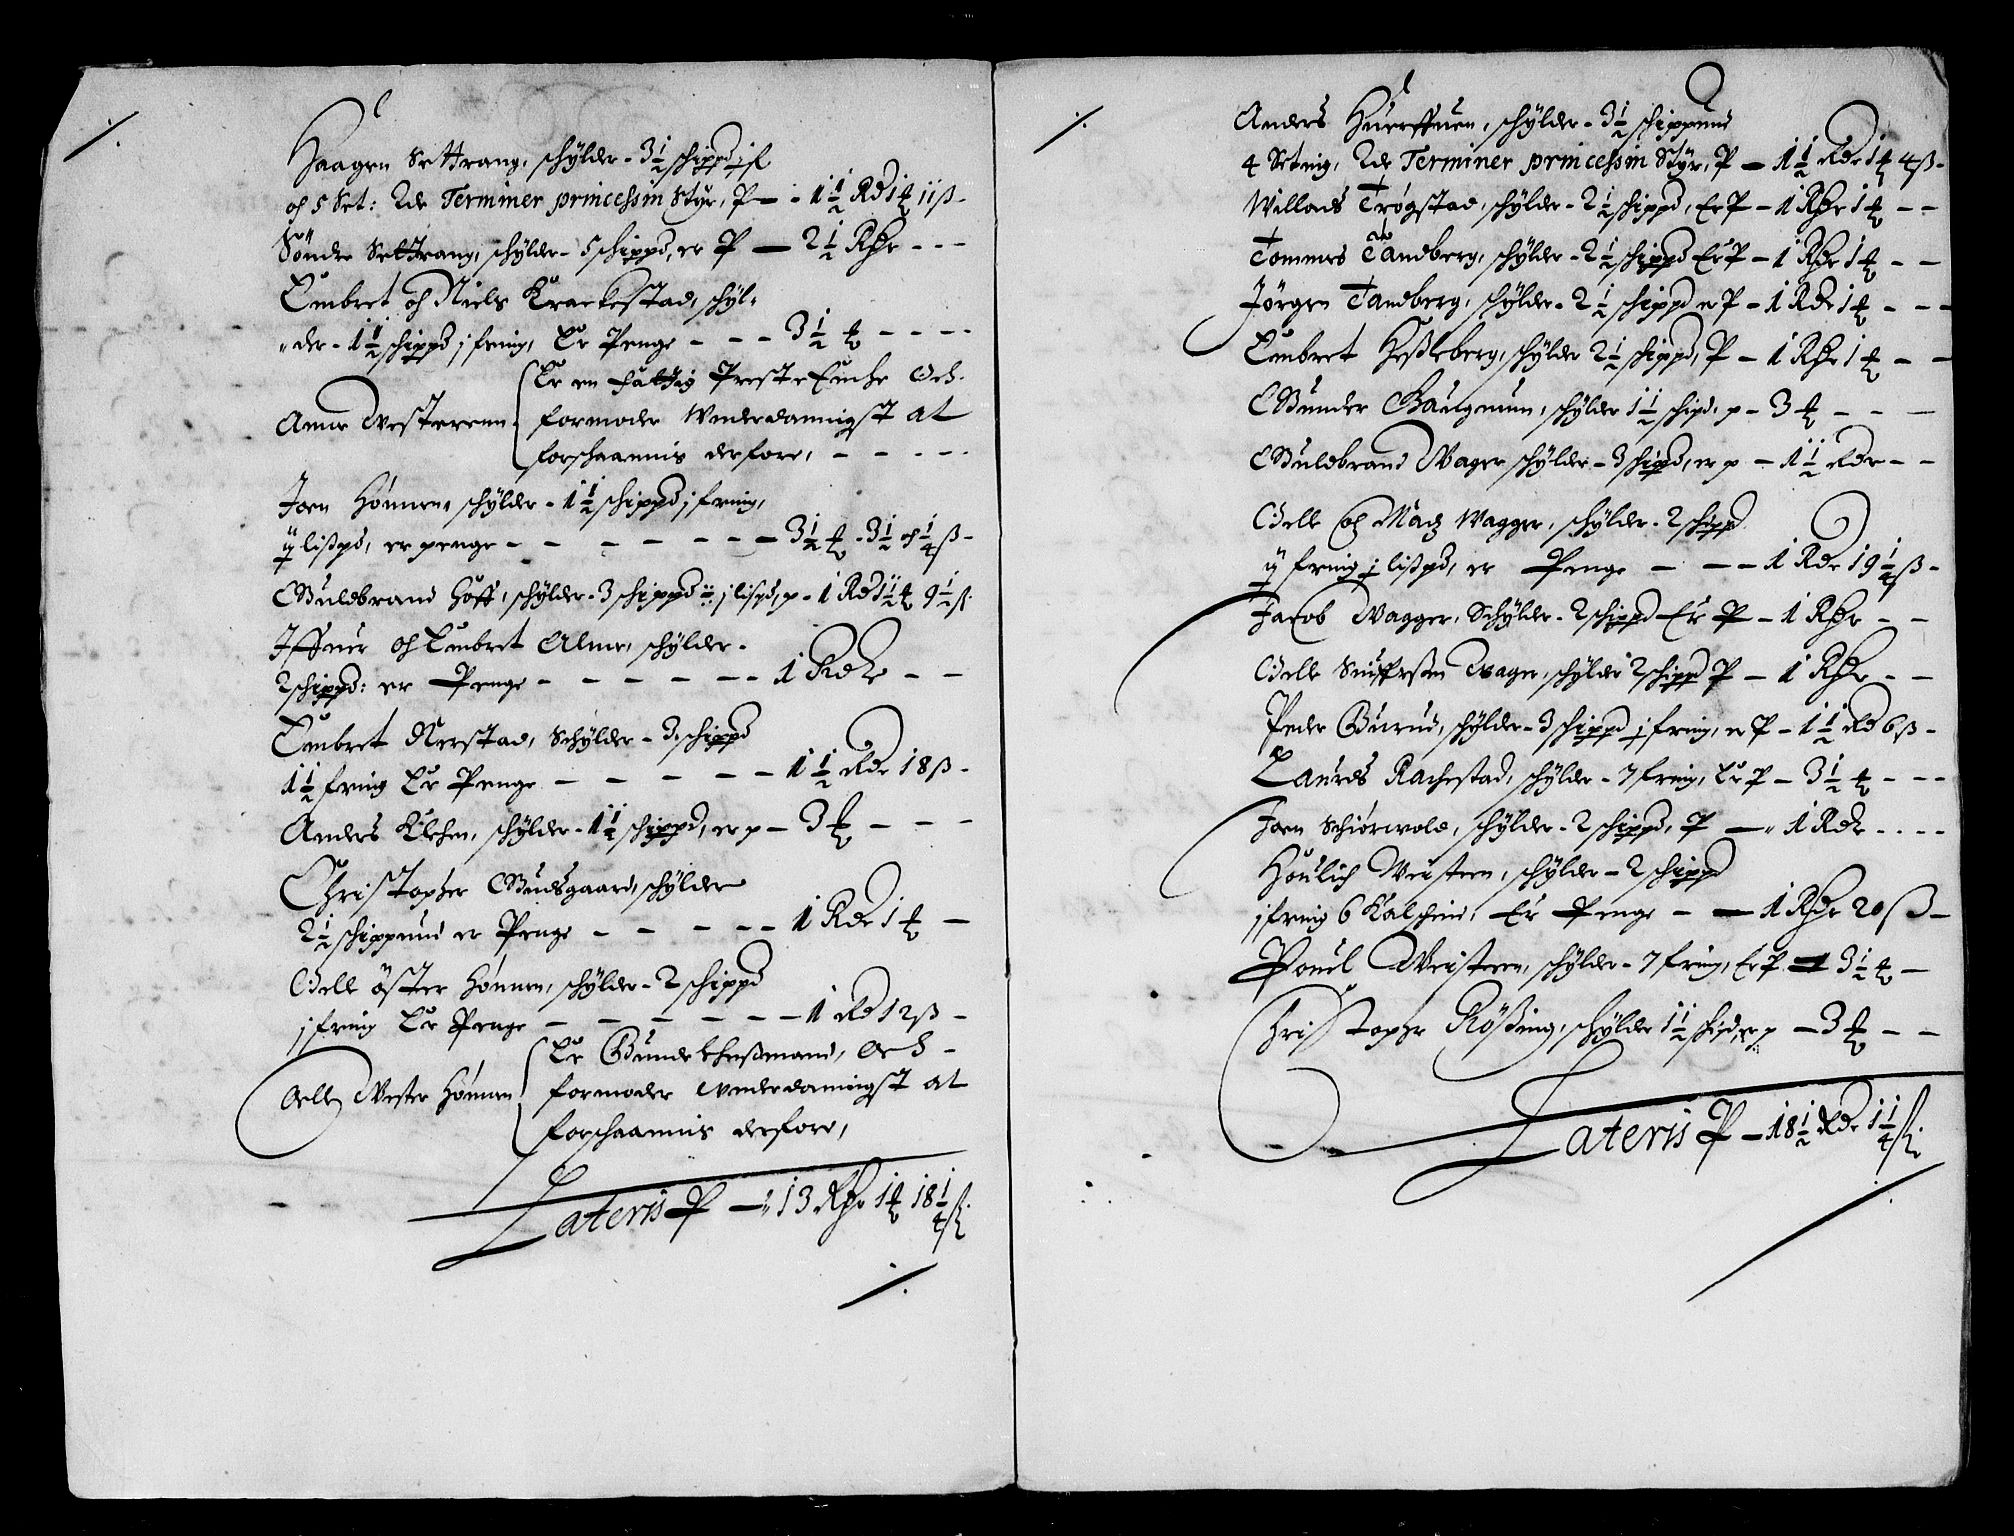 Haagen Settrang, schylder - 3½ schippd j f
och 5 Set: 2de Terminer princessin Styr, P — 1½ Rd 1 ort ii ß -
Söndre Settrang, schylder - 5 schippd, er P — 2½ Rdr - - -
Embret och Niels Krackestad, schyl-
der - 1½ schippd j fring, Er Penge - - - 3½ ort - - - -
Er en fattig Preste Encke Och
Anne Westerenn formoder Underdannigst at
forschaannis derfore, - - - -
Joen Hönnen, schylder - 1½ schippd j fring,
ij lißpd, er penge - - - - - - 3½ ort - 3½ och ¼ ß -
Guldbrand Hoff, schylder - 3 schippd j lispd, p - 1 Rd 1½ ort 9½ ß
Iffuer och Embret Alme, schylder -
2 schippd: er Penge - - - - - - 1 Rdr - -
Embret Nerstad, Schylder - 3 schippd
1½ fring Er Penge - - - - - 1½ Rdr 18 ß -
Anders Klehen, schylder - 1½ schippd, er p - 3 ort - - -
Christopher Gudsgaard, schylder
2½ schippund er Penge - - - - - 1 Rdr 1 ort -
Olle öster Hönnen, schylder - 2 schippd
j fring Er Penge - - - - - - 1 Rd 12 ß -
Er Bunde Hußmand, och -
Olle Wester Hönnen formoder Underdannigst at
forschaannis derfore,
Lateris P — 13 Rdr 1 ort 18¼ ß
Anders Huerffuen, schylder - 3½ schippund
4 Setting, 2de Terminer princessin Styr, P — 1½ Rdr 1 ort 4 ß -
Willads Trögstad, schylder - 2½ schippd, Er P - 1 Rdr 1 ort - -
Tommes Tandberg, schylder - 2½ schippd Er P - 1 Rdr 1 ort - -
Jörgen Tandberg, schylder - 2½ schippd er P - 1 Rdr 1 ort - - -
Embret Heßleberg, schylder 2½ schippd, P - 1 Rdr 1 ort - -
Gunder Gaugnum, schylder 1½ schipd, p - 3 ort - - -
Guldbrand Wager schylder - 3 schipd, er p - 1½ Rdr - -
Olle och Madz Wagger, schylder - 2 schippd
ij fring j lißpd, er Penge - - - 1 Rdr 19¼ ß -
Jacob Wagger, Schylder - 2 schippd Er P - 1 Rdr - -
Olle Siuffersen Wager, schylder 2 schippd P - 1 Rdr - -
Peder Burud, schylder - 3 schippd j fring, er P - 1½ Rd 6 ß -
Laurids Rachestad, schylder - 7 fring, Er P - 3½ ort - - -
Joen Schiörwold, schylder - 2 schippd, P — 1 Rdr - - - -
Houlich Weisteen, schylder - 2 schippd
j fring 6 Kalschind, Er Penge - — 1 Rdr 20 ß -
Pouel Weisteen, schylder - 7 fring, Er P — 3½ ort -
Christopher Rößing, schylder 1½ schipd, er p - 3 ort - -
Lateris P — 18½ Rdr 1¼ ß